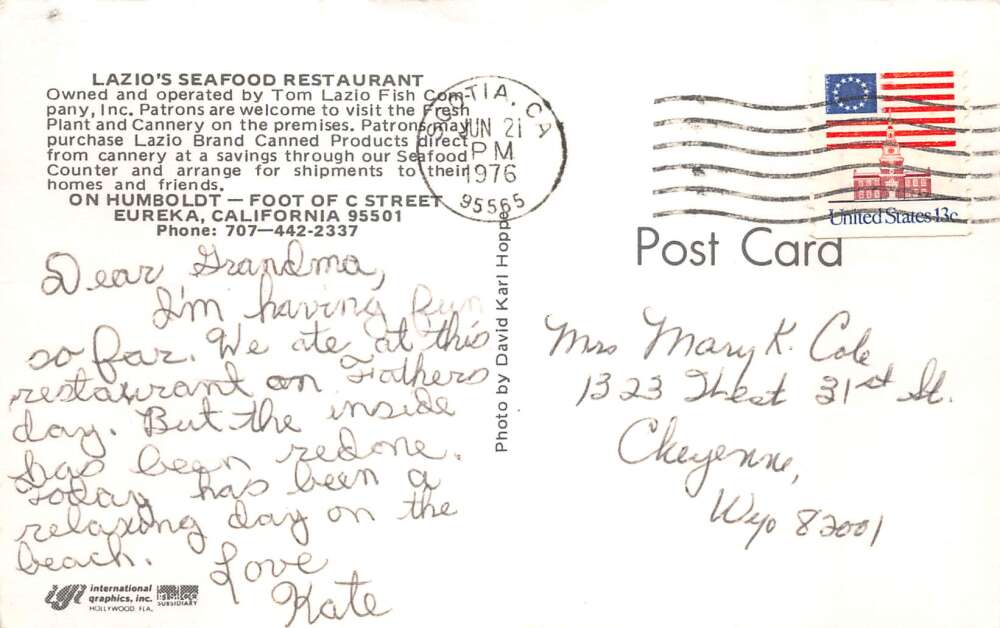 LAZIO'S SEAFOOD RESTAURANT
Owned and operated by Tom Lazio Fish Com-
pany, Inc. Patrons are welcome to visit the Fresh
Plant and Cannery on the premises. Patrons may
purchase Lazio Brand Canned Products direct
from cannery at a savings through our Seafood
Counter and arrange for shipments to their
homes and friends.
ON HUMBOLDT — FOOT OF C STREET
EUREKA, CALIFORNIA 95501
Phone: 707—442-2337
Dear Grandma,
I'm having fun
so far. We ate at this
restaurant on Fathers
day. But the inside
has been redone.
Today has been a
relaxing day on the
beach.
Love
Kate
international
graphics, inc.
HOLLYWOOD, FLA.
SUBSIDIARY
Photo by David Karl Hoppe
SCOTIA, CA
JUN 21
PM
1976
95565
United States 13c
Post Card
Mrs Mary K. Cole
1323 West 31st St.
Cheyenne,
Wyo 82001